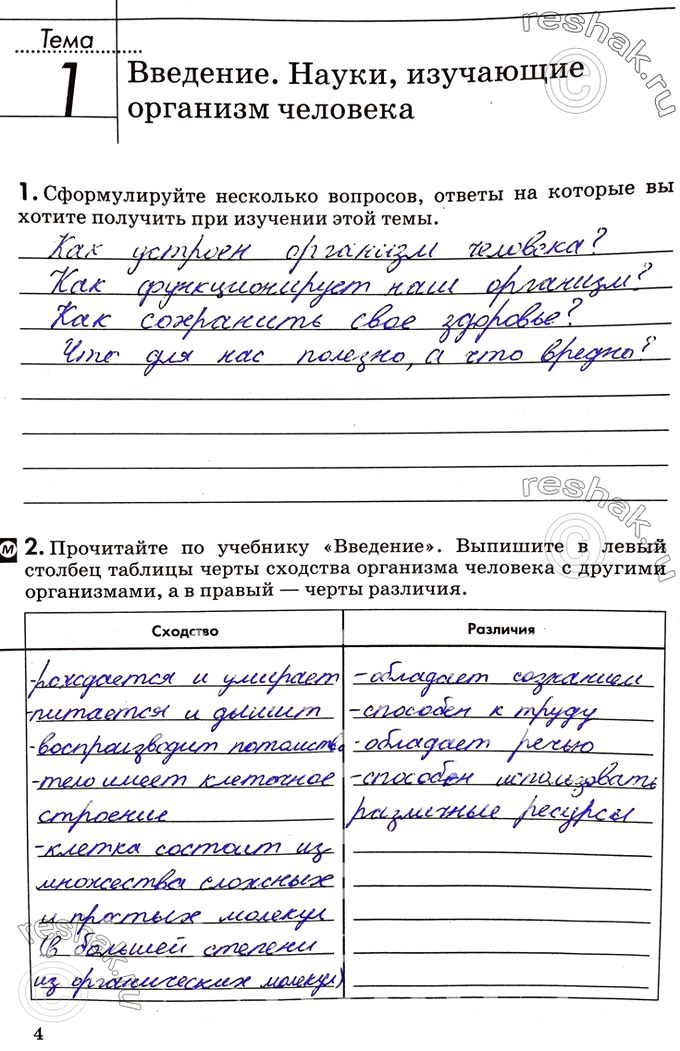 reshak.ru
Тема
1
Введение. Науки, изучающие
организм человека
1. Сформулируйте несколько вопросов, ответы на которые вы
хотите получить при изучении этой темы.
Как устроен организм человека?
Как функционирует наш организм?
Как сохранить свое здоровье?
Что для нас полезно, а что вредно?
reshak.ru
М
2. Прочитайте по учебнику «Введение». Выпишите в левый
столбец таблицы черты сходства организма человека с другими
организмами, а в правый — черты различия.
Сходство
-рождается и умирает
-питается и дышит
-воспроизводит потомство
-тело имеет клеточное
строение
-клетка состоит из
множества сложных
и простых молекул
(в большей степени
из органических молекул)
Различия
-обладает сознанием
-способен к труду
-обладает речью
-способен использовать
различные ресурсы
reshak.ru
4